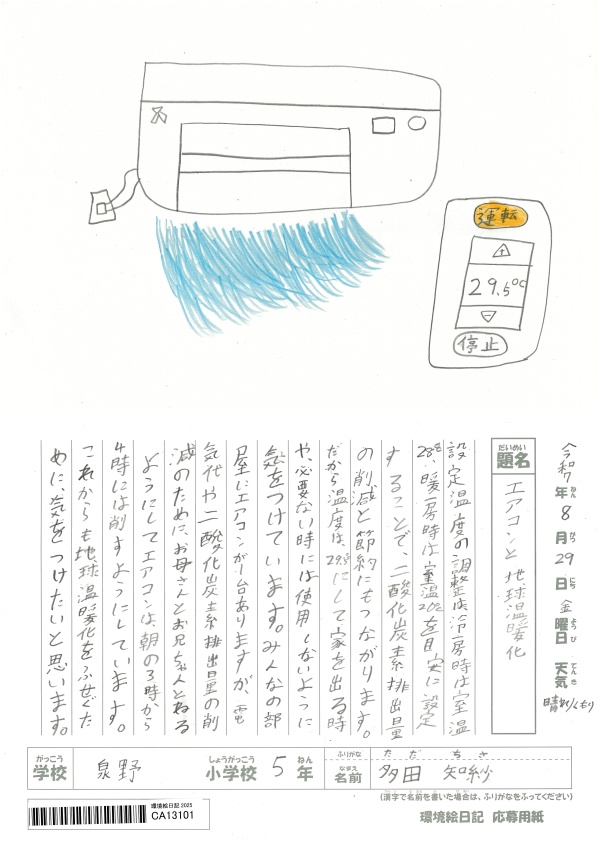 運転
29.5℃
停止
令和7年8月29日金曜日 天気 晴れ/くもり
ねん がつ にち ようび てんき
だいめい
題名
エアコンと地球温暖化
設定温度の調整は、冷房時は室温
28℃、暖房時は室温20℃を目安に設定
することで、二酸化炭素排出量
の削減と節約にもつながります。
だから温度は、29.5にして家を出る時
や、必要ない時には使用しないように
気をつけています。みんなの部
屋にエアコンが1台ありますが、電
気代や二酸化炭素排出量の削
減のために、お母さんとお兄ちゃんとねる
ようにしてエアコンは、朝の3時から
4時には消すようにしています。
これからも地球温暖化をふせぐた
めに、気をつけたいと思います。
がっこう
学校
泉野
しょうがっこう
小学校
5
ねん
年
ふりがな
ただ ちさ
なまえ
名前
多田 知紗
(漢字で名前を書いた場合は、ふりがなをふってください)
環境絵日記 2025
CA13101
環境絵日記 応募用紙